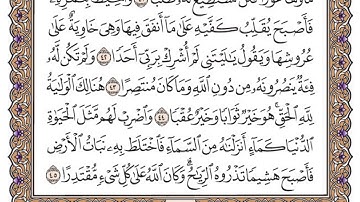 فَأَصْبَحَ يُقَلِّبُ كَفَّيْهِ عَلَىٰ مَآ أَنفَقَ فِيهَا وَهِىَ خَاوِيَةٌ عَلَىٰ
عُرُوشِهَا وَيَقُولُ يَـٰلَيْتَنِى لَمْ أُشْرِكْ بِرَبِّىٓ أَحَدًا ٤٢ وَلَمْ تَكُن لَّهُۥ
فِئَةٌ يَنصُرُونَهُۥ مِن دُونِ ٱللَّهِ وَمَا كَانَ مُنتَصِرًا ٤٣ هُنَالِكَ ٱلْوَلَـٰيَةُ
لِلَّهِ ٱلْحَقِّ ۚ هُوَ خَيْرٌ ثَوَابًا وَخَيْرٌ عُقْبًا ٤٤ وَٱضْرِبْ لَهُم مَّثَلَ ٱلْحَيَوٰةِ
ٱلدُّنْيَا كَمَآءٍ أَنزَلْنَـٰهُ مِنَ ٱلسَّمَآءِ فَٱخْتَلَطَ بِهِۦ نَبَاتُ ٱلْأَرْضِ
فَأَصْبَحَ هَشِيمًا تَذْرُوهُ ٱلرِّيَـٰحُ ۗ وَكَانَ ٱللَّهُ عَلَىٰ كُلِّ شَىْءٍ مُّقْتَدِرًا ٤٥